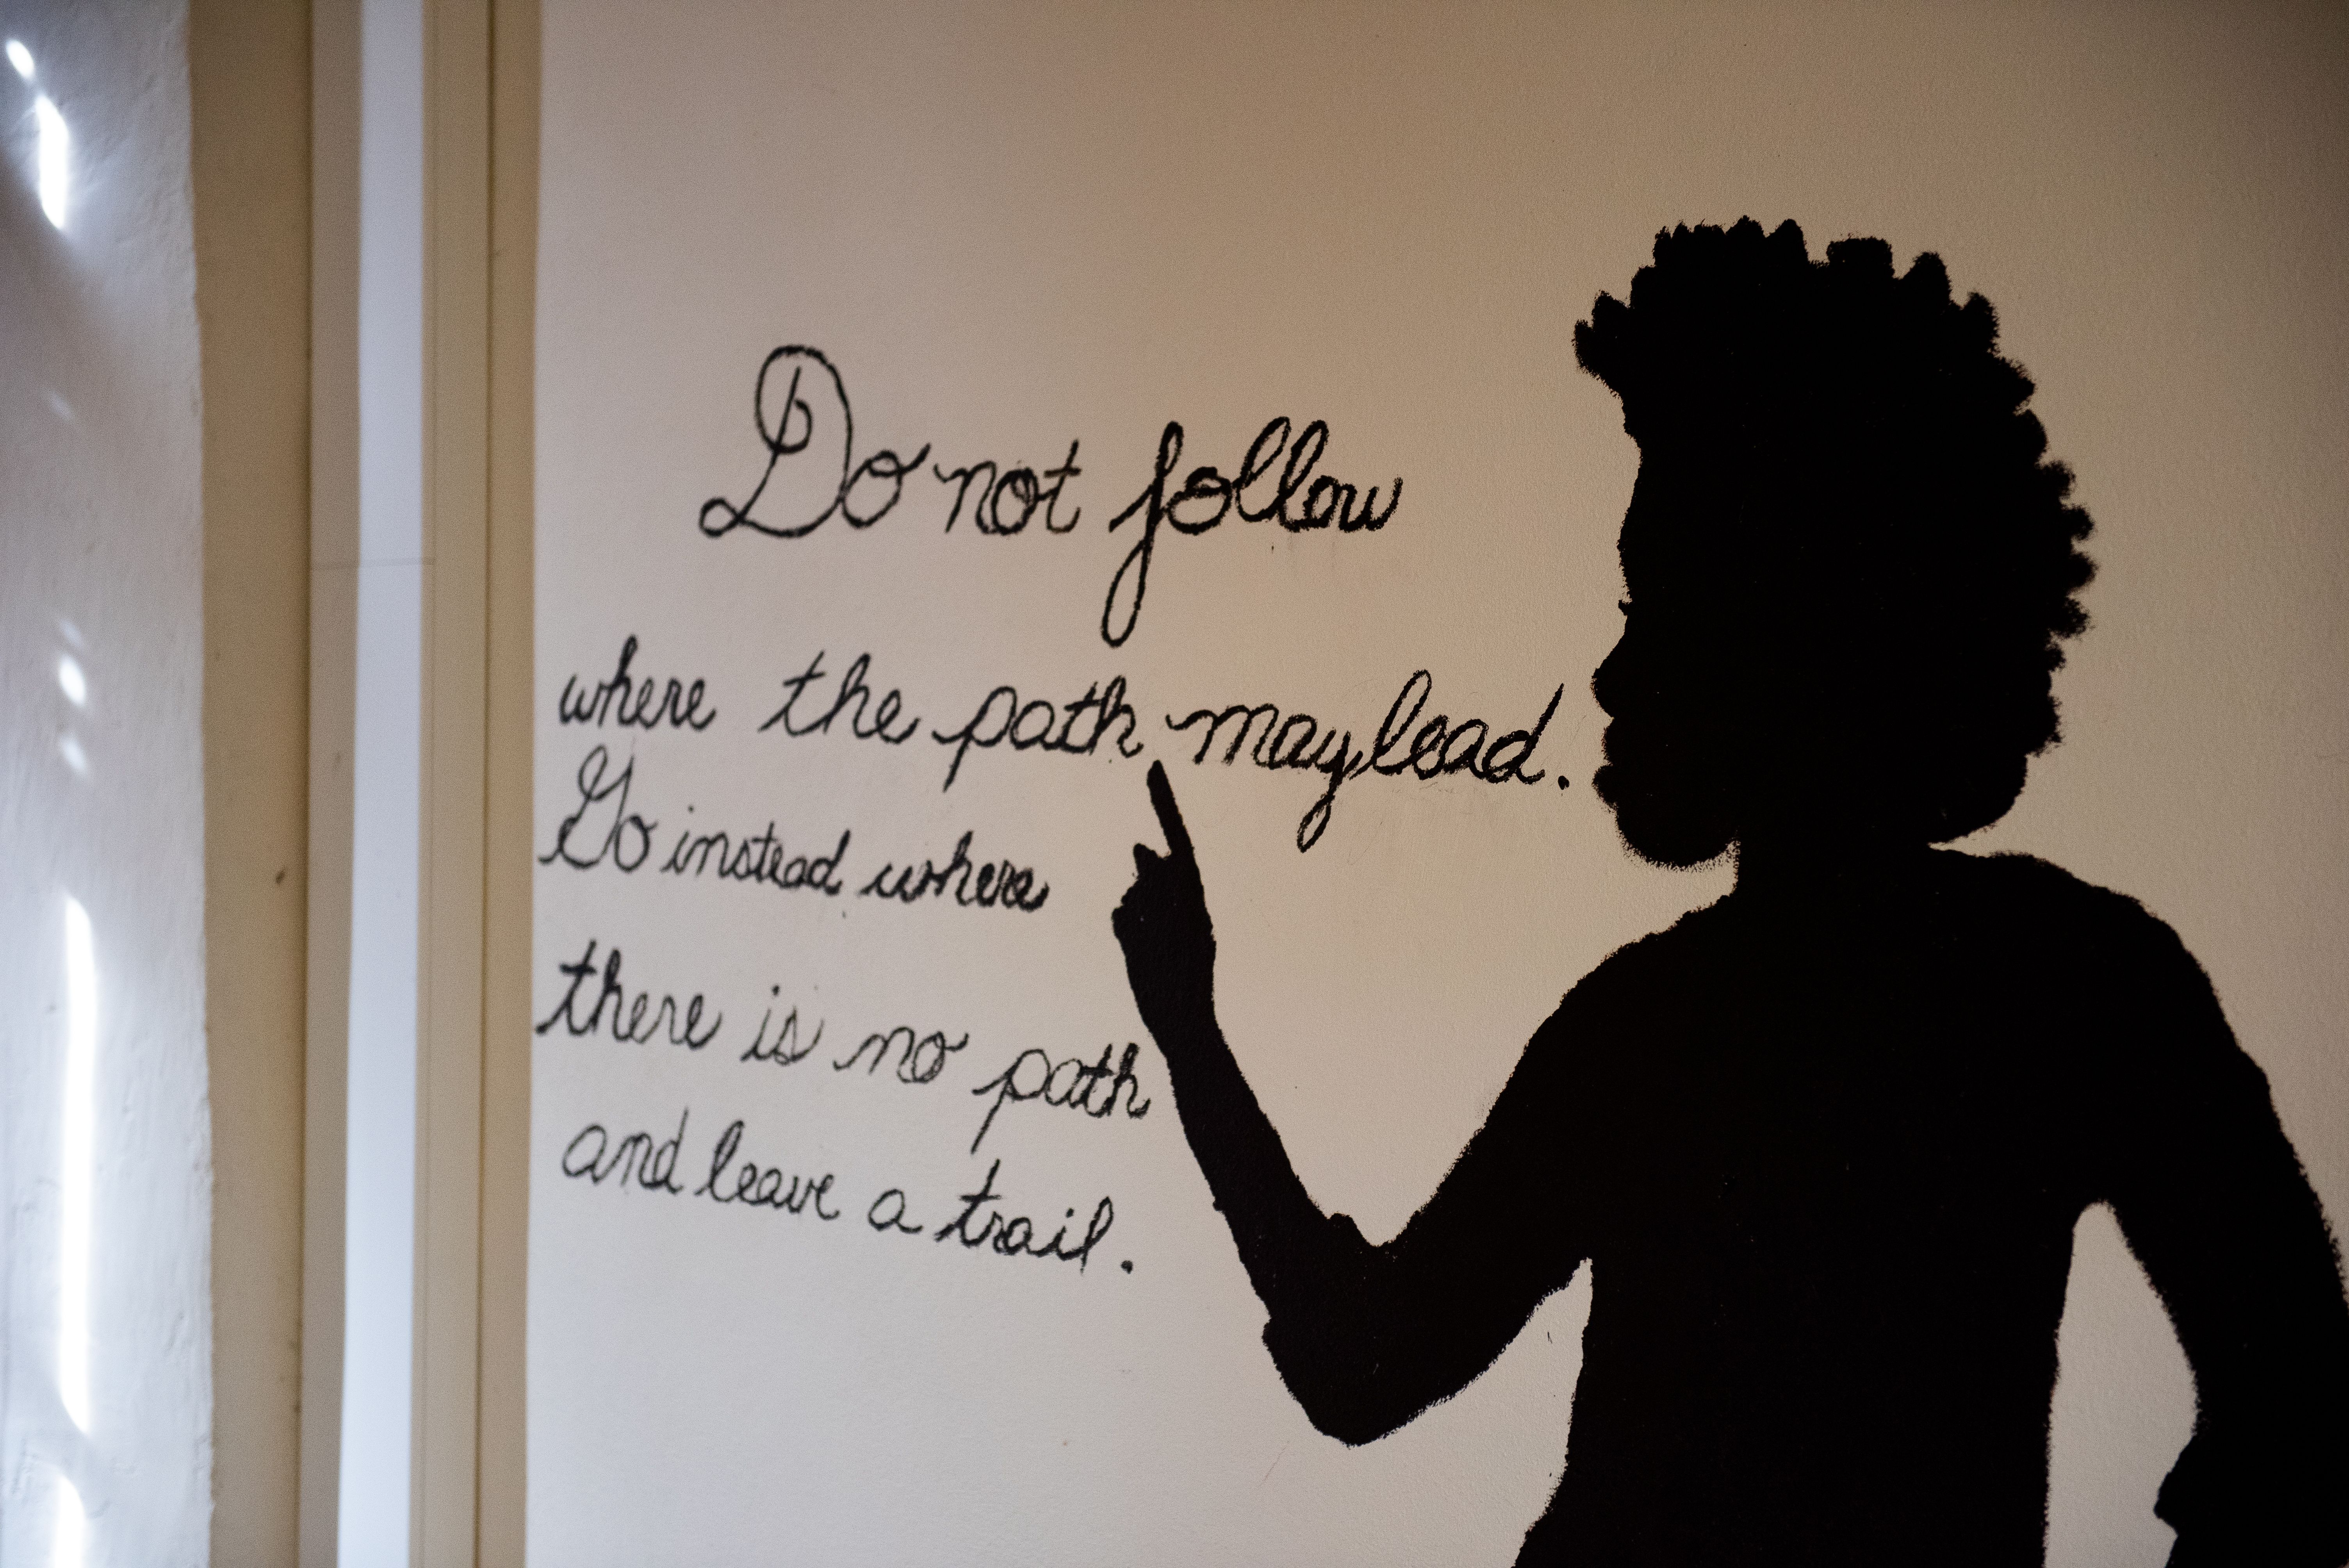 Do not follow
where the path may lead.
Go instead where
there is no path
and leave a trail.